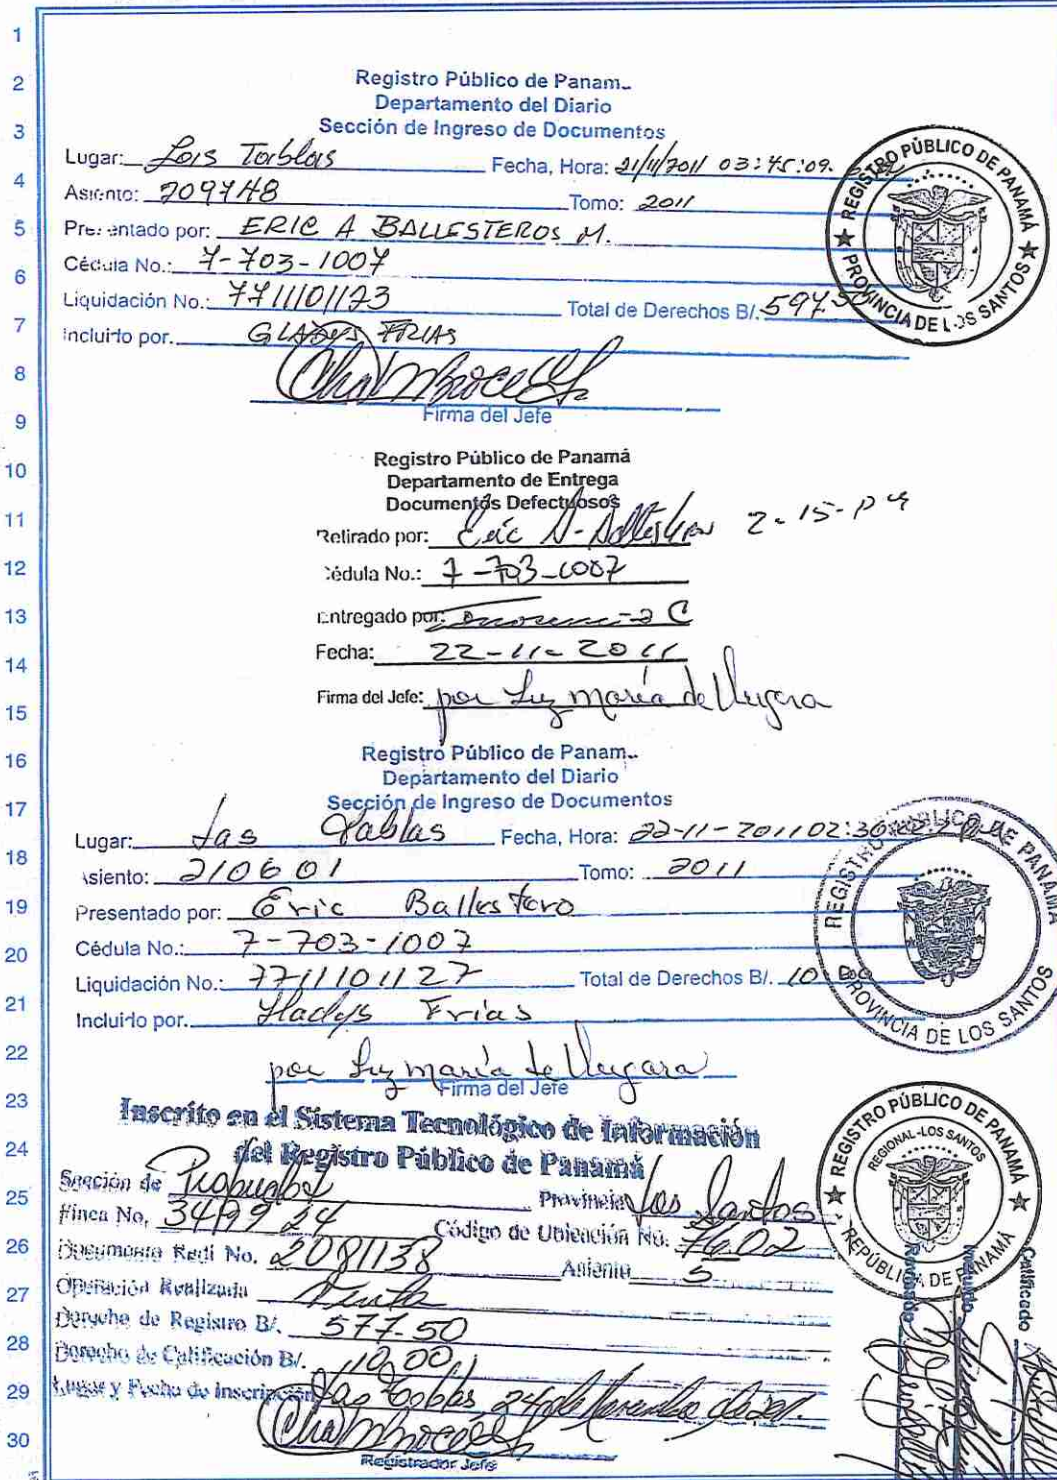 1
2 Registro Público de Panam..
Departamento del Diario
3 Sección de Ingreso de Documentos
4 Lugar: Las Tablas Fecha, Hora: 21/11/2011 03:45:09.
5 Asiento: 209748 Tomo: 2011
Presentado por: ERIC A BALLESTEROS M.
6 Cédula No.: 7-703-1007
7 Liquidación No.: 7711101123 Total de Derechos B/. 597.50
Incluido por. GLADYS FRIAS
8
9 Firma del Jefe
REGISTRO PÚBLICO DE PANAMÁ
PROVINCIA DE LOS SANTOS
10 Registro Público de Panamá
Departamento de Entrega
11 Documentos Defectuosos
Retirado por: Eric A. 2-15-
12 Cédula No.: 7-703-1007
13 Entregado por:
14 Fecha: 22-11-2011
15 Firma del Jefe: por Luz María de
16 Registro Público de Panam..
Departamento del Diario
17 Sección de Ingreso de Documentos
Lugar: Las Tablas Fecha, Hora: 22-11-2011 02:36
18 Asiento: 210601 Tomo: 2011
19 Presentado por: Eric Ballestero
20 Cédula No.: 7-703-1007
Liquidación No.: 7711101127 Total de Derechos B/. 10
21 Incluido por. Gladys Frias
22 por Luz María de
Firma del Jefe
REGISTRO PÚBLICO DE PANAMÁ
PROVINCIA DE LOS SANTOS
23 Inscrito en el Sistema Tecnológico de Información
24 del Registro Público de Panamá
25 Sección de Propiedad Provincia Los Santos
Finca No, 349924 Código de Ubicación No. 7602
26 Documento Redi No. 2081138 Asiento 5
27 Operación Realizada Venta
Derecho de Registro B/. 577.50
28 Derecho de Calificación B/. 10.00
29 Lugar y Fecha de Inscripción Las Tablas 24 de Noviembre de 2011.
30 Registrador Jefe
REGISTRO PÚBLICO DE PANAMÁ
REGIONAL-LOS SANTOS
REPÚBLICA DE PANAMÁ
Calificado
Revisado